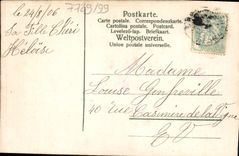 7789/99
le 24/8/06
Sa Fille Chéri
Héloïse
Postkarte.
Carte postale. Correspondenzkarte.
Cartolina postale. Postcard.
Levelező-lap. Briefkaart.
Weltpostverein.
Union postale universelle.
Madame
Louise
40 rue Casimir de la Vigne
E V